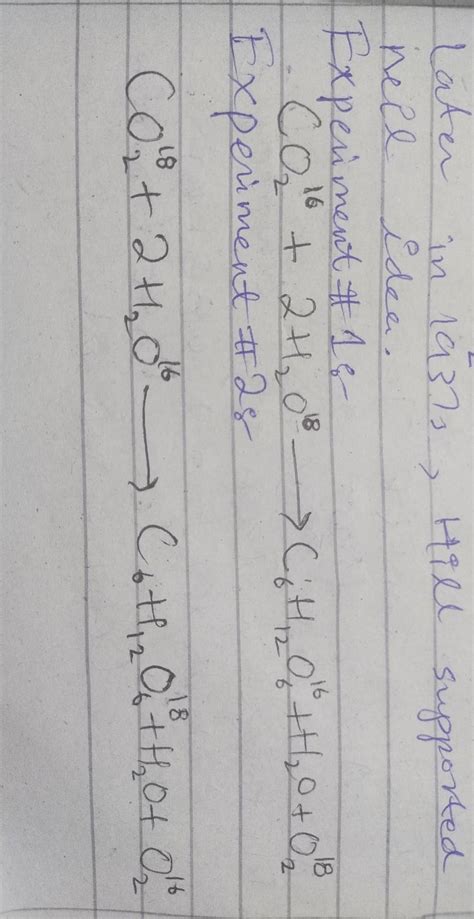 later in 1937s, Hill supported
neil idea.
Experiment #1:
CO₂¹⁶ + 2H₂O¹⁸ → C₆H₁₂O₆¹⁶ + H₂O + O₂¹⁸
Experiment #2:
CO₂¹⁸ + 2H₂O¹⁶ → C₆H₁₂O₆¹⁸ + H₂O + O₂¹⁶